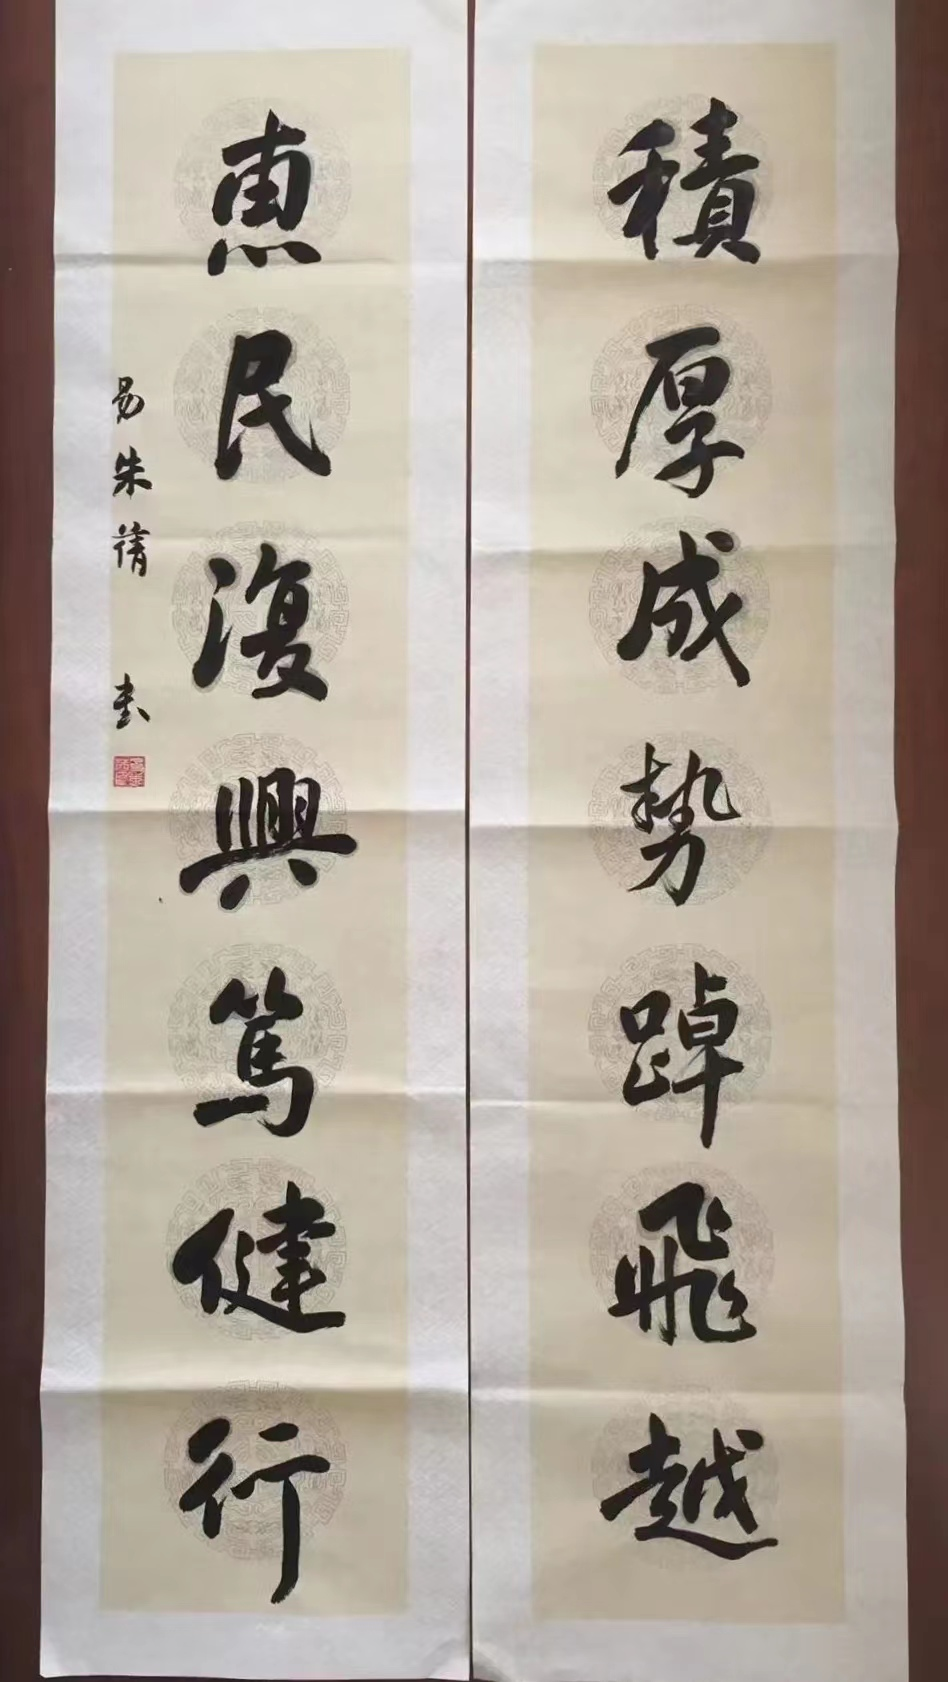 積厚成勢踔飛越
惠民復興篤健行
易朱蒨 书